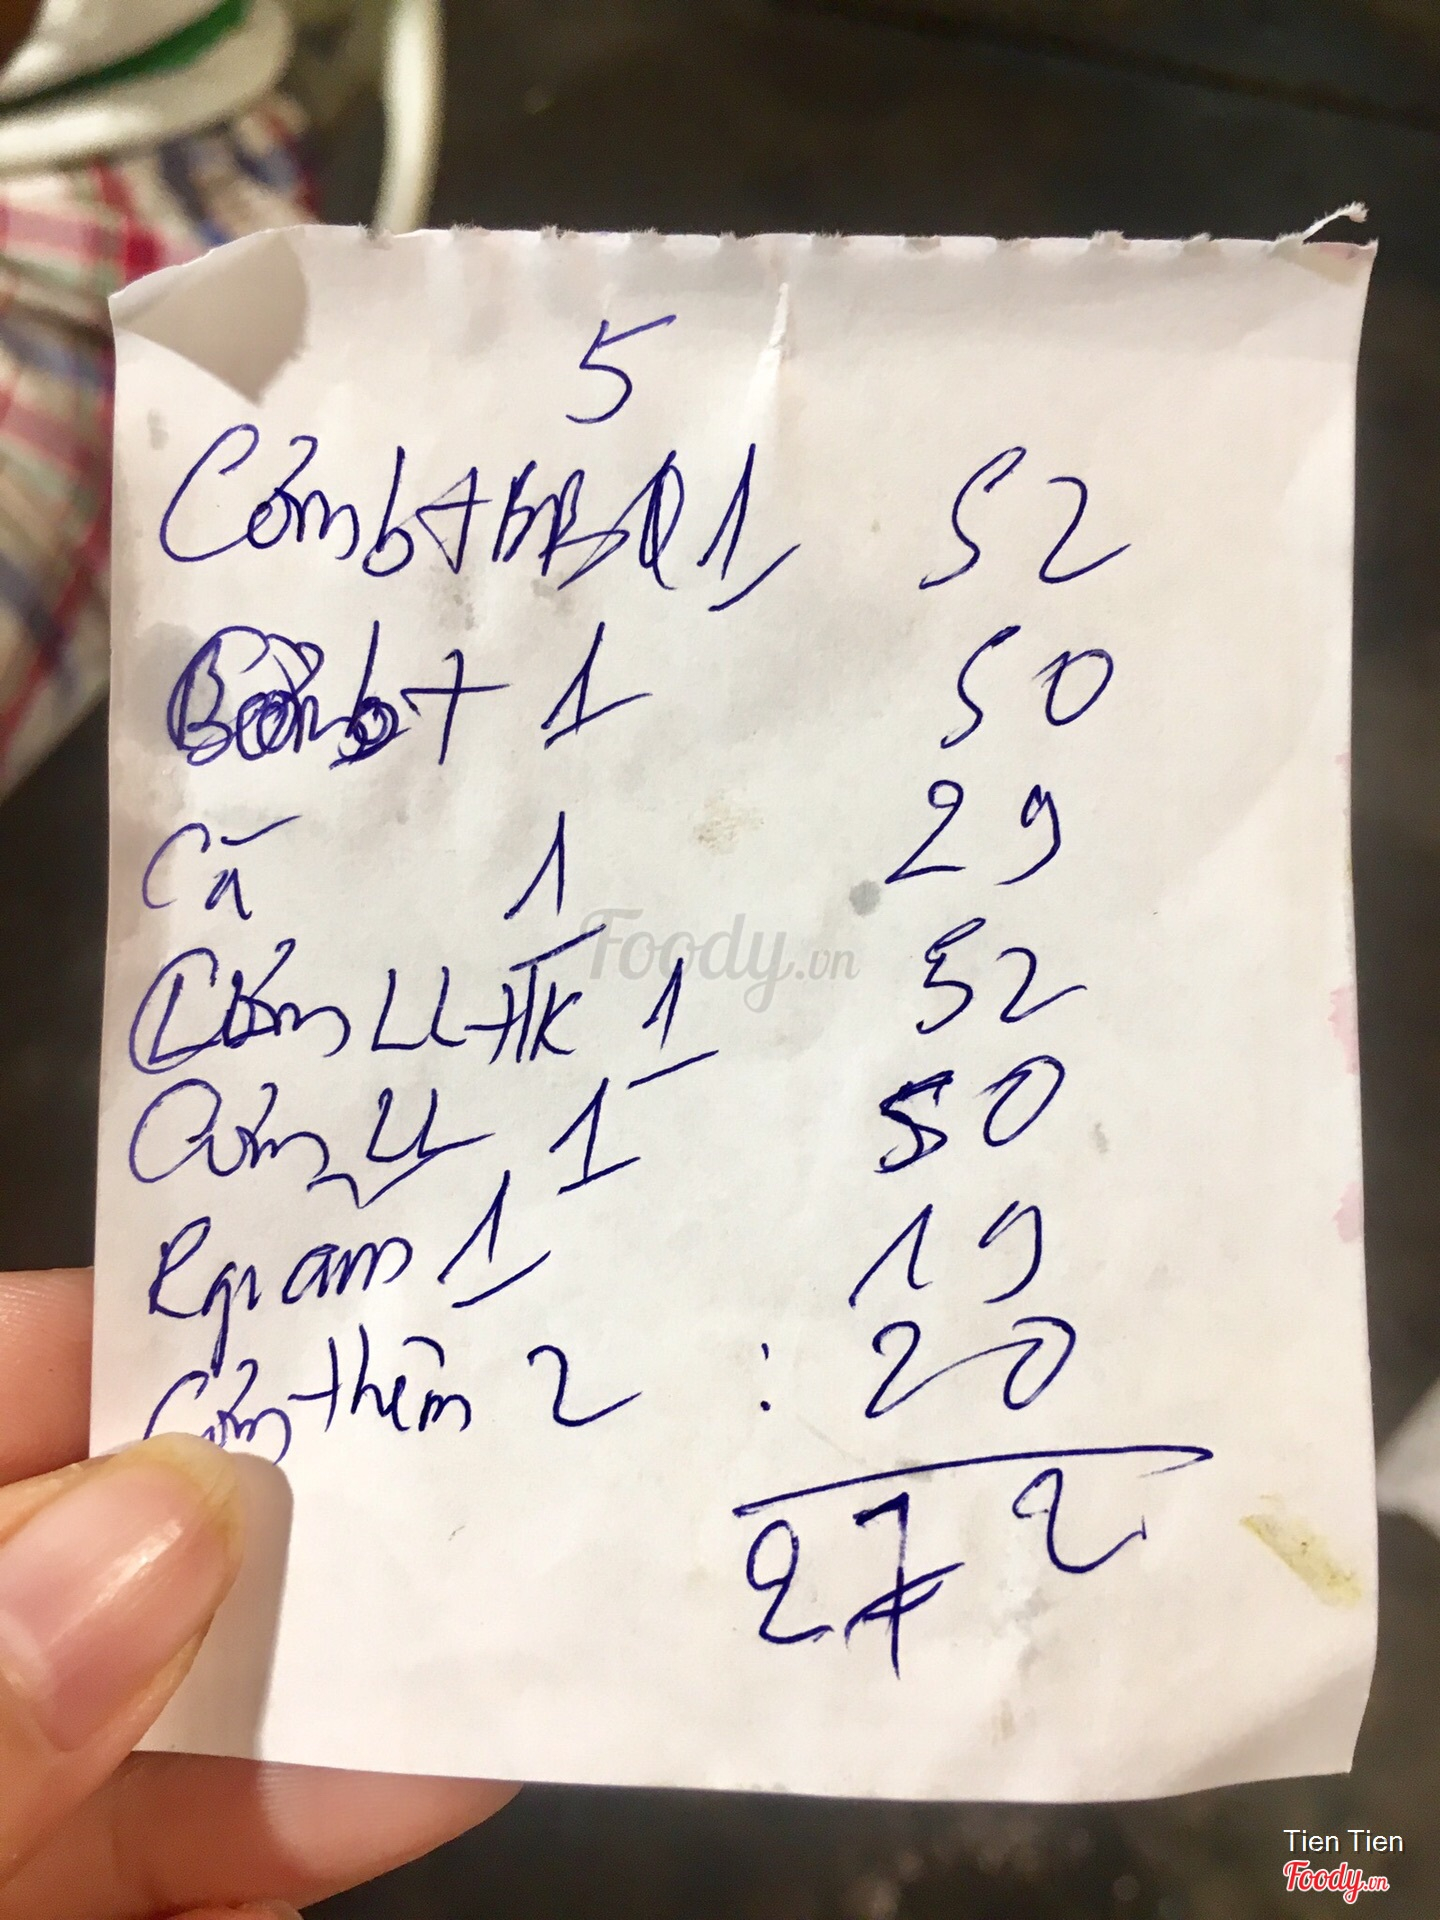 5
Cơm bò + BBQ 1 52
Cơm bò + 1 50
Cá 1 29
Cơm LL + TK 1 52
Cơm LL 1 50
1 19
Cơm thêm 2 : 20
272
Foody.vn
Tien Tien
Foody.vn